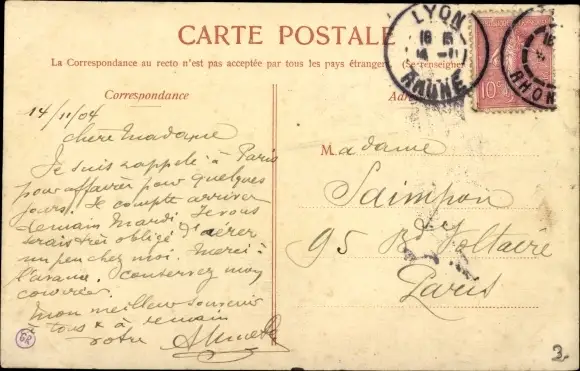 CARTE POSTALE
La Correspondance au recto n'est pas acceptée par tous les pays étrangers (Se renseigner
Correspondance
Adr
LYON
RHONE
RHON
10c
14/11/04
Chère Madame
Je suis rappelé à Paris
pour affaires pour quelques
jours. Je compte arriver
demain Mardi. Je vous
serais très obligé d'aérer
un peu chez moi. Merci à
l'avance. Conservez mon
courrier
mon meilleur souvenir
à tous & à demain
votre
Madame
Saimpon
95 Bd Voltaire
Paris
GR
3.